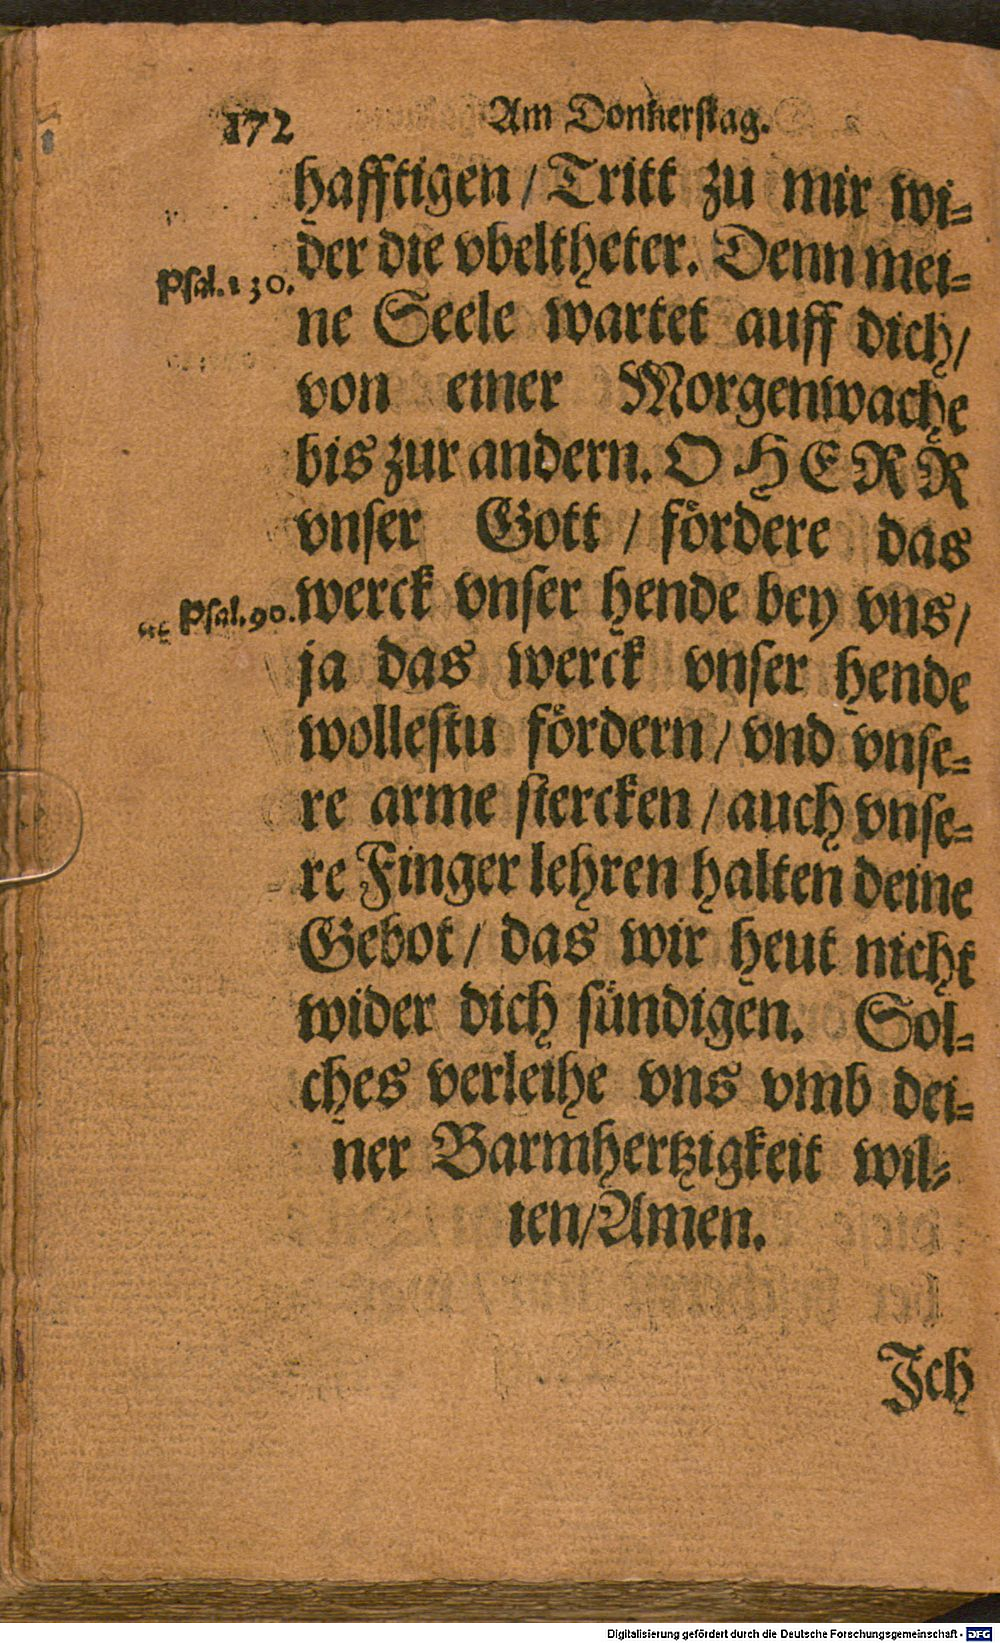 172 Am Donnerstag.
hafftigen / Tritt zu mir wi-
der die vbeltheter. Denn mei-
Psal. 130.
ne Seele wartet auff dich /
von einer Morgenwache
bis zur andern. O HERR
vnser Gott / foͤrdere das
werck vnser hende bey vns /
Psal. 90.
ja das werck vnser hende
wollestu foͤrdern / vnd vnse-
re arme stercken / auch vnse-
re Finger lehren halten deine
Gebot / das wir heut nicht
wider dich suͤndigen. Sol-
ches verleihe vns vmb dei-
ner Barmhertzigkeit wil-
len / Amen.
Jch
Digitalisierung gefördert durch die Deutsche Forschungsgemeinschaft - DFG